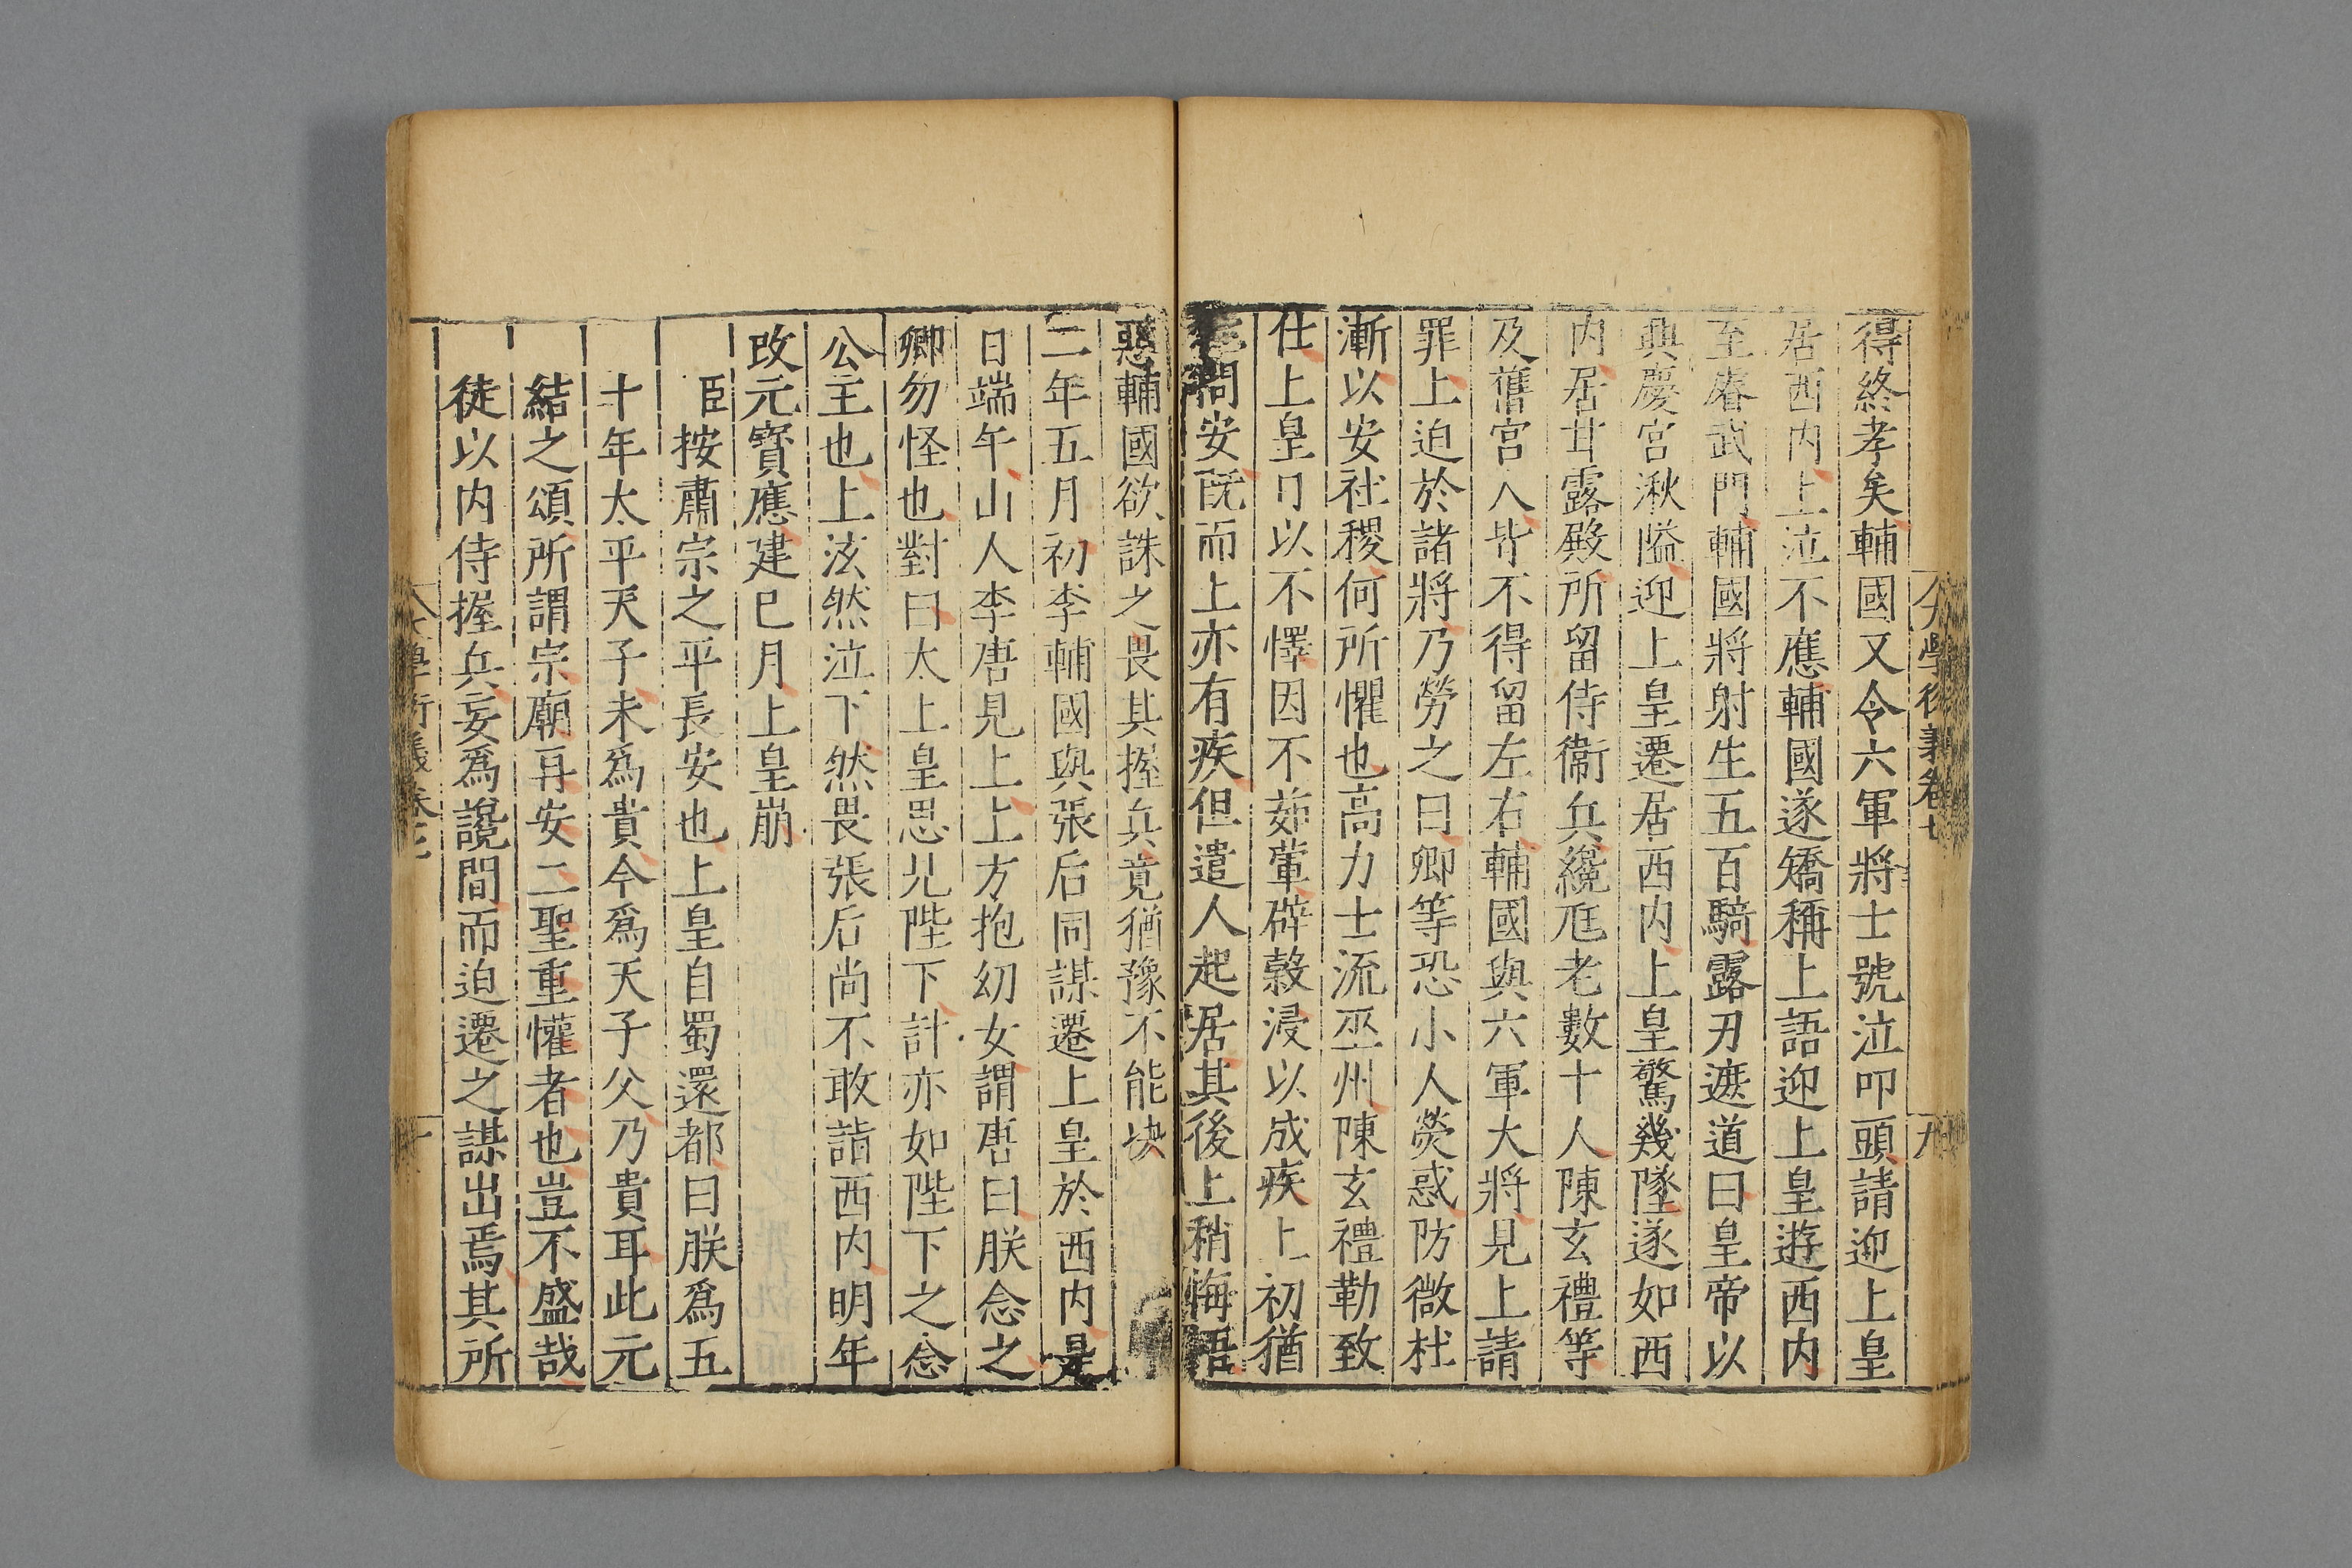 得終孝矣輔國又令六軍將士號泣叩頭請迎上皇
居西内上泣不應輔國遂矯稱上語迎上皇遊西内
至睿武門輔國將射生五百騎露刃遮道曰皇帝以
興慶宮湫隘迎上皇遷居西内上皇驚幾墜遂如西
内居甘露殿所留侍衞兵纔尫老數十人陳玄禮等
及舊宮人皆不得留左右輔國與六軍大將見上請
罪上迫於諸將乃勞之曰卿等恐小人熒惑防微杜
漸以安社稷何所懼也高力士流巫州陳玄禮勒致
仕上皇日以不懌因不茹葷辟穀浸以成疾上初猶
問安既而上亦有疾但遣人起居其後上稍悔悟
惡輔國欲誅之畏其握兵竟猶豫不能决
二年五月初李輔國與張后同謀遷上皇於西内是
日端午山人李唐見上上方抱幼女謂唐曰朕念之
卿勿怪也對曰太上皇思見陛下計亦如陛下之念
公主也上泫然泣下然畏張后尚不敢詣西内明年
改元寳應建巳月上皇崩
臣按肅宗之平長安也上皇自蜀還都曰朕爲五
十年太平天子未爲貴今爲天子父乃貴耳此元
結之頌所謂宗廟再安二聖重懽者也豈不盛哉
徒以内侍握兵妄爲讒間而迫遷之謀出焉其所